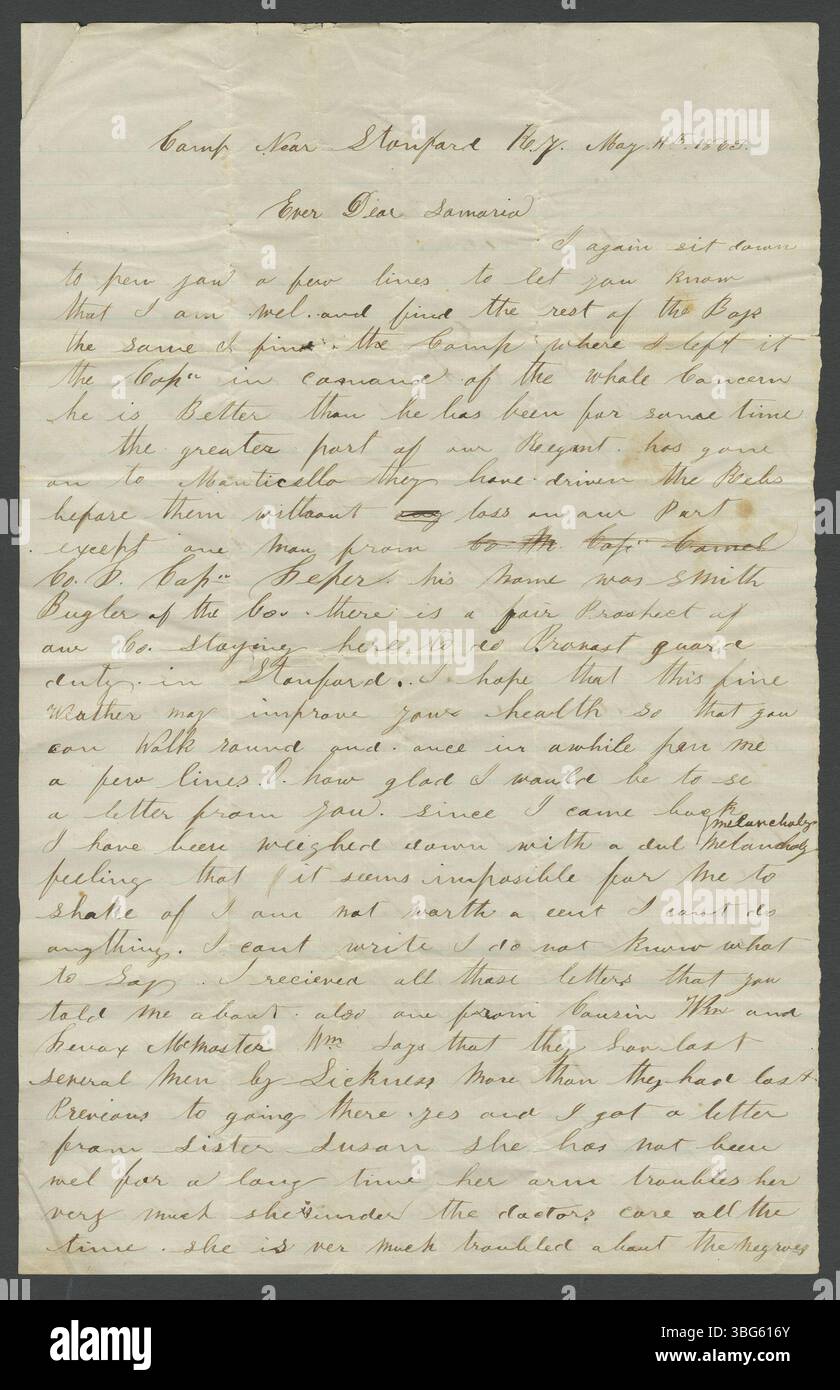 Camp Near Stanford Ky. May 11th 1863.
Ever Dear Samaria
I again sit down
to pen you a few lines to let you know
that I am wel. and find the rest of the Boys
the same I find the Camp where I left it
the Capn in comand of the whole Concern
he is Better than he has been for some time
the greater part of our Regmt. has gone
on to Monticello they have driven the Rebs
before them without any loss on our Part
except one man from Co M. Capn
Co. Capn his name was Smith
Bugler of the Co. there is a fair Prospect of
our Co. staying here to do Provost guard
duty in Stanford. I hope that this fine
Weather may improve your health so that you
can Walk round and once in awhile pen me
a few lines. O. how glad I would be to se
a letter from you. since I came back
I have been weighed down with a dul melancholy melancholy
feeling that it seems imposible for me to
shake of I am not worth a cent I cant do
anything. I cant write I do not know what
to Say. I recieved all those letters that you
told me about. also one from Cousin Wm and
McMaster Wm Says that they hav last
several Men by Sickness More than they had lost
Previous to going there. yes and I got a letter
from Sister Susan she has not been
wel for a long time her arm troubles her
very much she is under the doctors care all the
time. she is ver much troubled about the negroes
alamy
Image ID: 3BG616Y
www.alamy.com